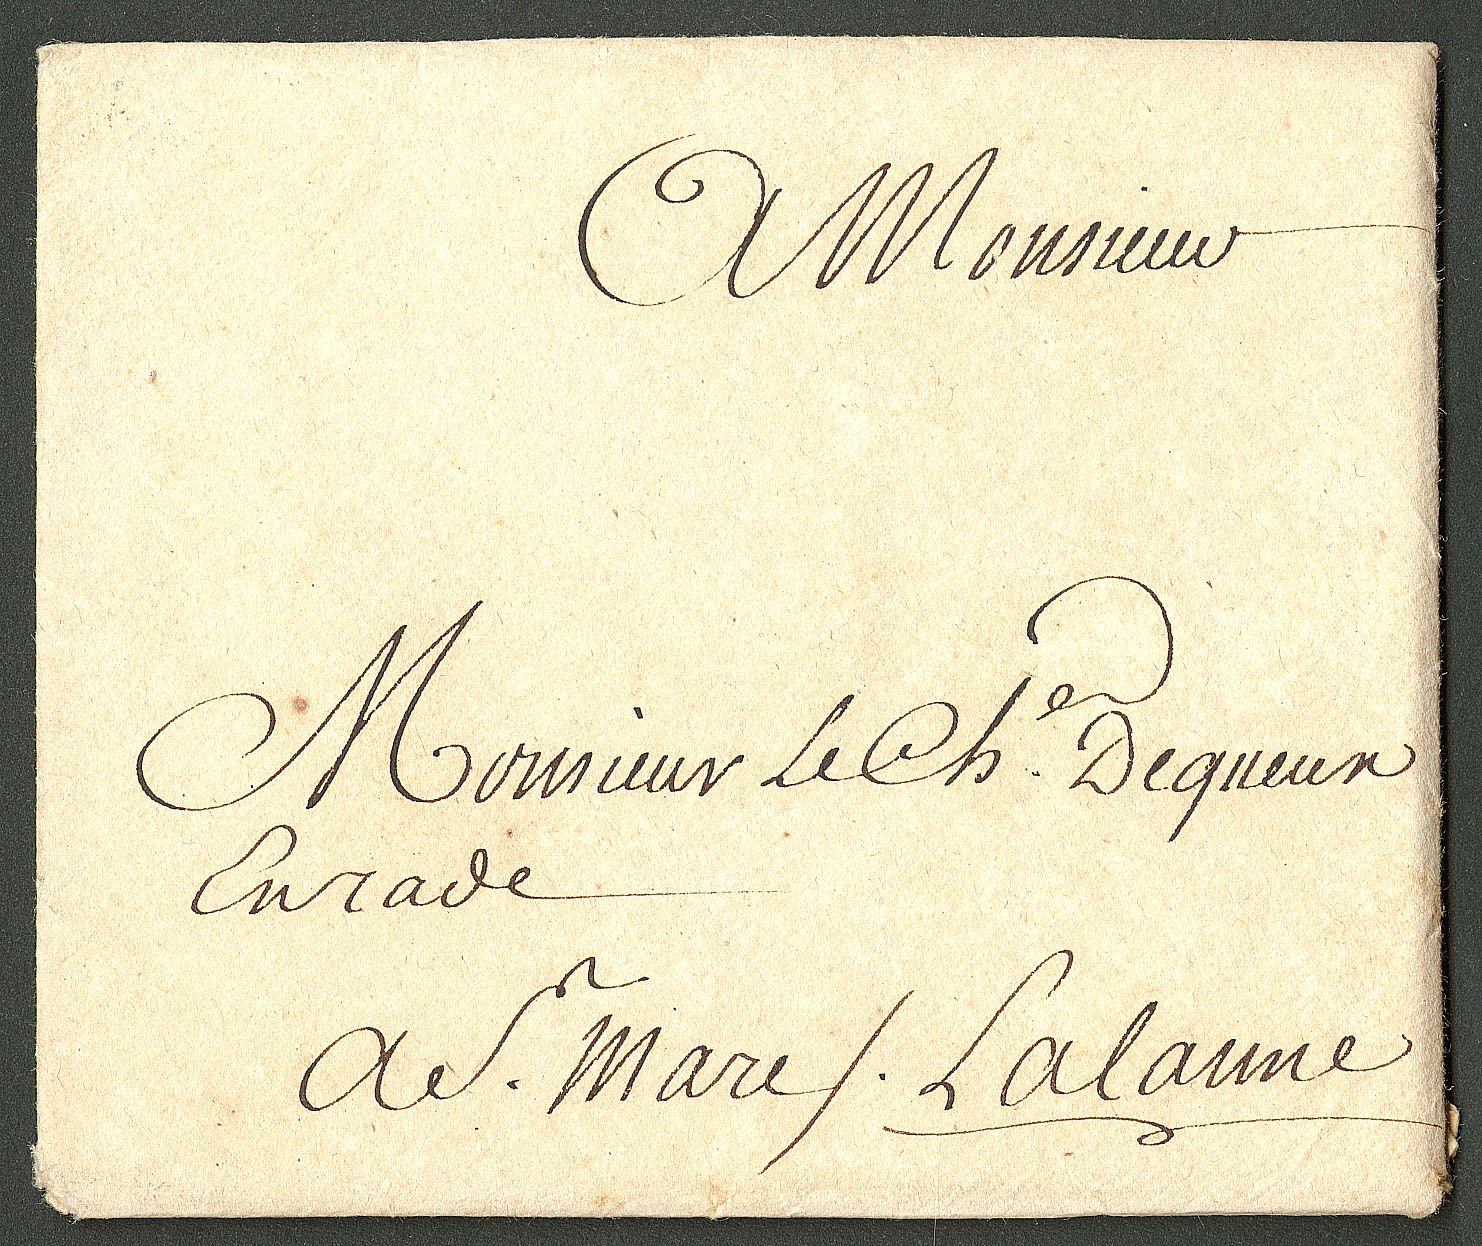 A Monsieur
Monsieur Le Ch.er Dequeux
Enrade
a St. Marc / . Lalanne